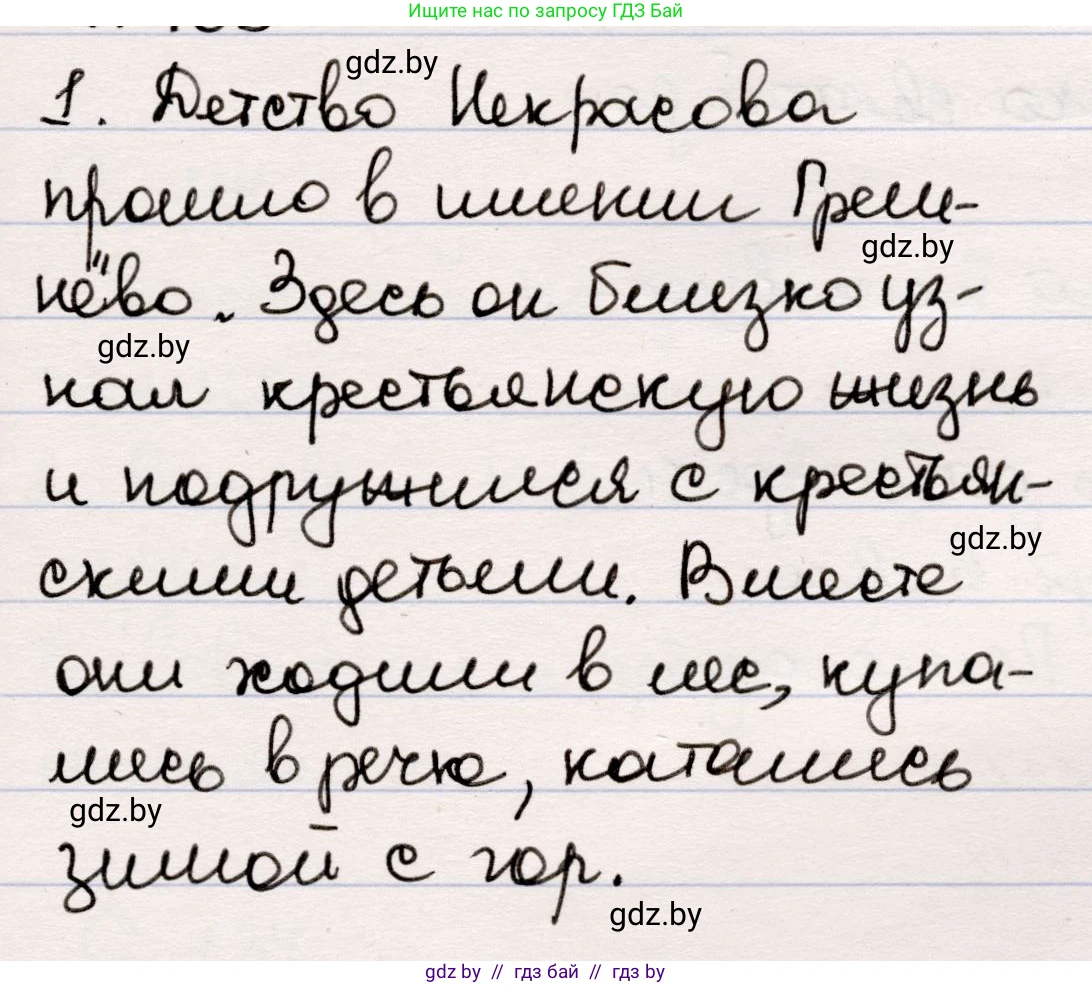 Ищите нас по запросу ГДЗ Бай
gdz.by
1. Детство Некрасова
прошло в имении Греш-
gdz.by
нёво. Здесь он близко уз-
gdz.by
нал крестьянскую жизнь
и подружился с крестьян-
gdz.by
скими детьми. Вместе
они ходили в лес, купа-
лись в речке, катались
gdz.by
зимой с гор.
gdz.by
gdz.by // гдз бай // гдз by